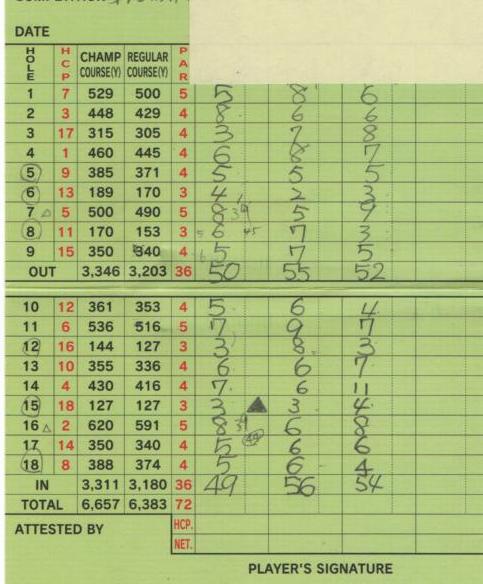 DATE
HOLE HCP CHAMP COURSE(Y) REGULAR COURSE(Y) PAR
1 7 529 500 5 5 8 6
2 3 448 429 4 8 6 6
3 17 315 305 4 3 7 8
4 1 460 445 4 6 8 7
5 9 385 371 4 5 5 5
6 13 189 170 3 4 2 3
7 △ 5 500 490 5 8 39 5 9
8 11 170 153 3 6 45 7 3
9 15 350 340 4 5 7 5
OUT 3,346 3,203 36 50 55 52
10 12 361 353 4 5 6 4
11 6 536 516 5 7 9 7
12 16 144 127 3 3 8 3
13 10 355 336 4 6 6 7
14 4 430 416 4 7 6 11
15 18 127 127 3 3 ▲ 3 4
16 △ 2 620 591 5 8 39 6 8
17 14 350 340 4 5 6 6
18 8 388 374 4 5 6 4
IN 3,311 3,180 36 49 56 54
TOTAL 6,657 6,383 72
ATTESTED BY HCP.
NET.
PLAYER'S SIGNATURE